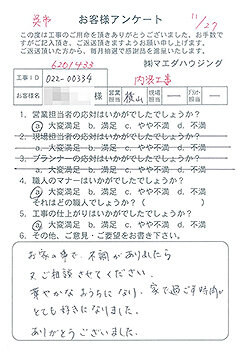 呉市
お客様アンケート
11/27
この度は工事のご用命を頂きありがとうございました。お手数で
すがご記入頂き、ご返送頂きますようお願い申し上げます。
ご返送頂いた方から、毎月抽選で感謝品を進呈いたします。
6201433
㈱マエダハウジング
工事ID 022-00334 内装工事
お客様名 様 営業担当 横山 現場担当 ー ー
1. 営業担当者の応対はいかがでしたでしょうか?
ⓐ 大変満足 b. 満足 c. やや不満 d. 不満
2. 現場担当者の応対はいかがでしたでしょうか?
a. 大変満足 b. 満足 c. やや不満 d. 不満
3. プランナーの応対はいかがでしたでしょうか?
a. 大変満足 b. 満足 c. やや不満 d. 不満
4. 職人のマナーはいかがでしたでしょうか?
ⓐ 大変満足 b. 満足 c. やや不満 d. 不満
それはどの職人でしょうか?( )
5. 工事の仕上がりはいかがでしたでしょうか?
ⓐ 大変満足 b. 満足 c. やや不満 d. 不満
6. その他、ご意見・ご要望をお書き下さい。
お家の事で、不調がありましたら
又ご相談させてください。
華やかなおうちになり、家で過ごす時間が
とても好きになりました。
ありがとうございました。